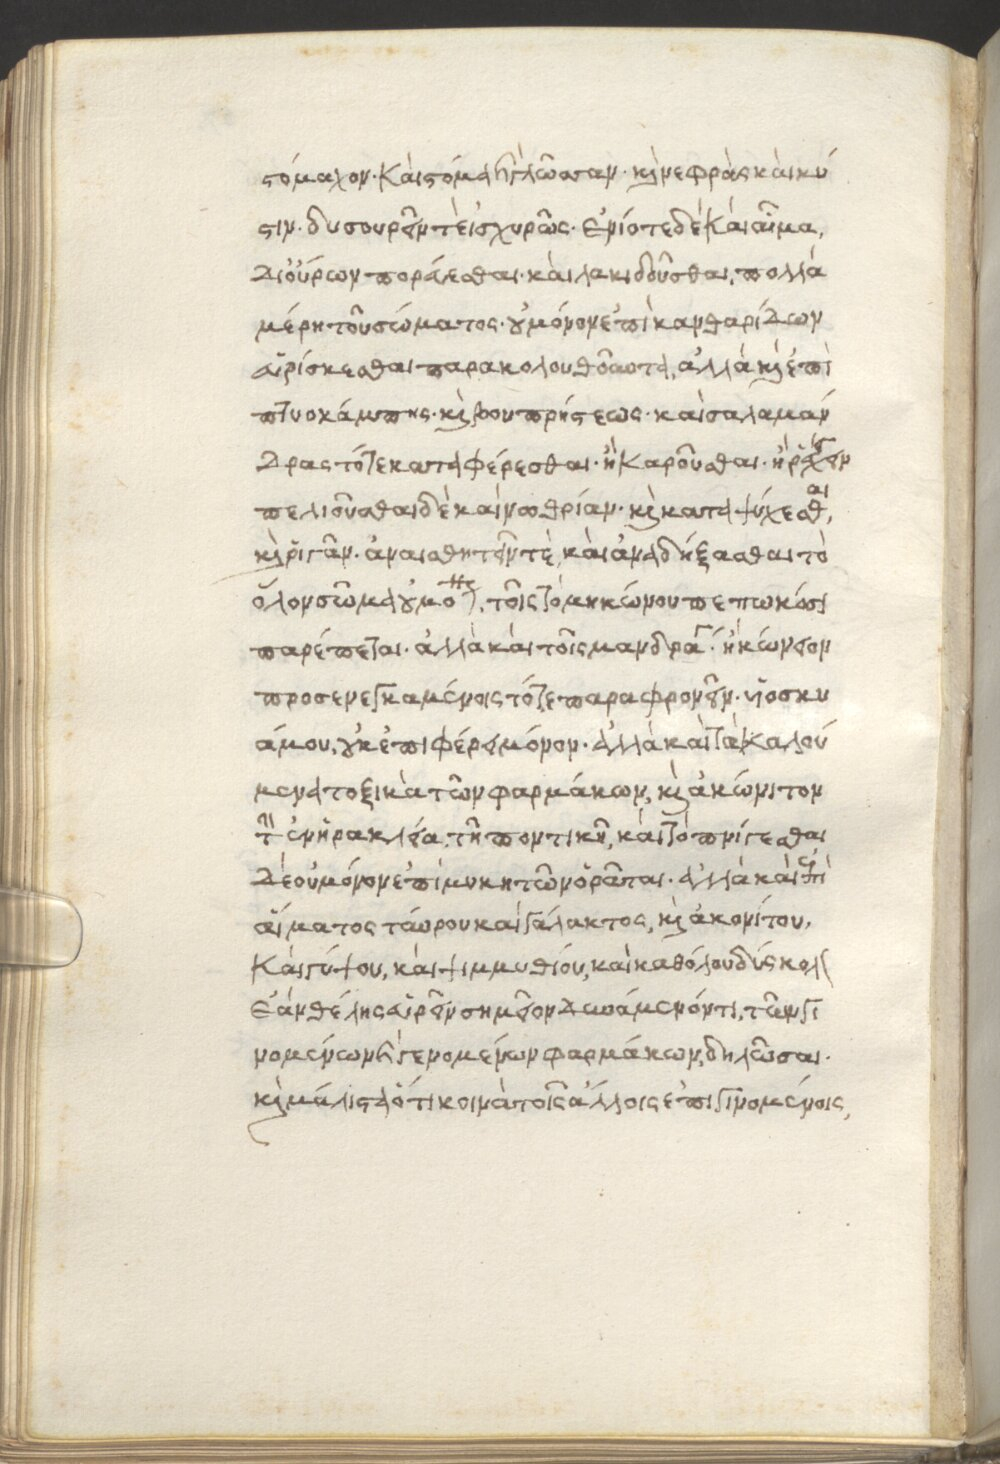 στόμαχον· καὶ στόμα καὶ γλῶτταν· καὶ νεφρὰς καὶ κύ
στιν· δυσουρεῖν τὲ ἰσχυρῶς· ἐνίοτε δὲ καὶ αἷμα,
δι οὔρων προΐεσθαι· καὶ δάκνεσθαι πολλὰ
μέρη τοῦ σώματος· οὐ μόνον ἐπὶ κανθαρίδων
εὑρίσκεσθαι παρακολουθοῦντα, ἀλλὰ καὶ ἐπὶ
πιτυοκάμπης· καὶ βουπρήστεως· καὶ σαλαμάν
δρας τότε καταφέρεσθαι· ἢ καροῦσθαι· ἢ
πελιοῦσθαι δὲ καὶ νωθρίαν· καὶ καταψύχεσθαι,
καὶ ῥιγᾶν· ἀναισθητεῖν τὲ, καὶ ἀναδήξασθαι τὸ
ὅλον σῶμα οὐ μό τοῖς τὸ μηκώνου πεπωκόσι
παρέπεται· ἀλλὰ καὶ τοῖς μανδραγ· ἢ κώνειον
προσενεγκαμένοις τότε παραφρονεῖν· ὑοσκυ
άμου, οὐκ ἐπιφέρει μόνον· ἀλλὰ καὶ τὰ καλού
μενα τοξικὰ τῶν φαρμάκων, καὶ ἀκώνιτον
τῇ ἐν ἡρακλεία τῇ ποντικῇ, καὶ τὸ πνίγεσθαι
δὲ οὐ μόνον ἐπὶ μυκητῶν ὁρᾶται· ἀλλὰ καὶ ἐπὶ
αἵματος ταύρου καὶ γάλακτος, καὶ ἀκονίτου,
καὶ γύψου, καὶ ψιμμυθίου, καὶ καθόλου δύσκολ
ἐὰν θέλῃς εὑρεῖν σημεῖον δυνάμενόν τι, τῶν γι
νομένων ἢ γενομένων φαρμάκων, δηλῶσαι·
καὶ μάλιστα ὅτι κοινὰ τοῖς ἄλλοις ἐπιγινομένοις,